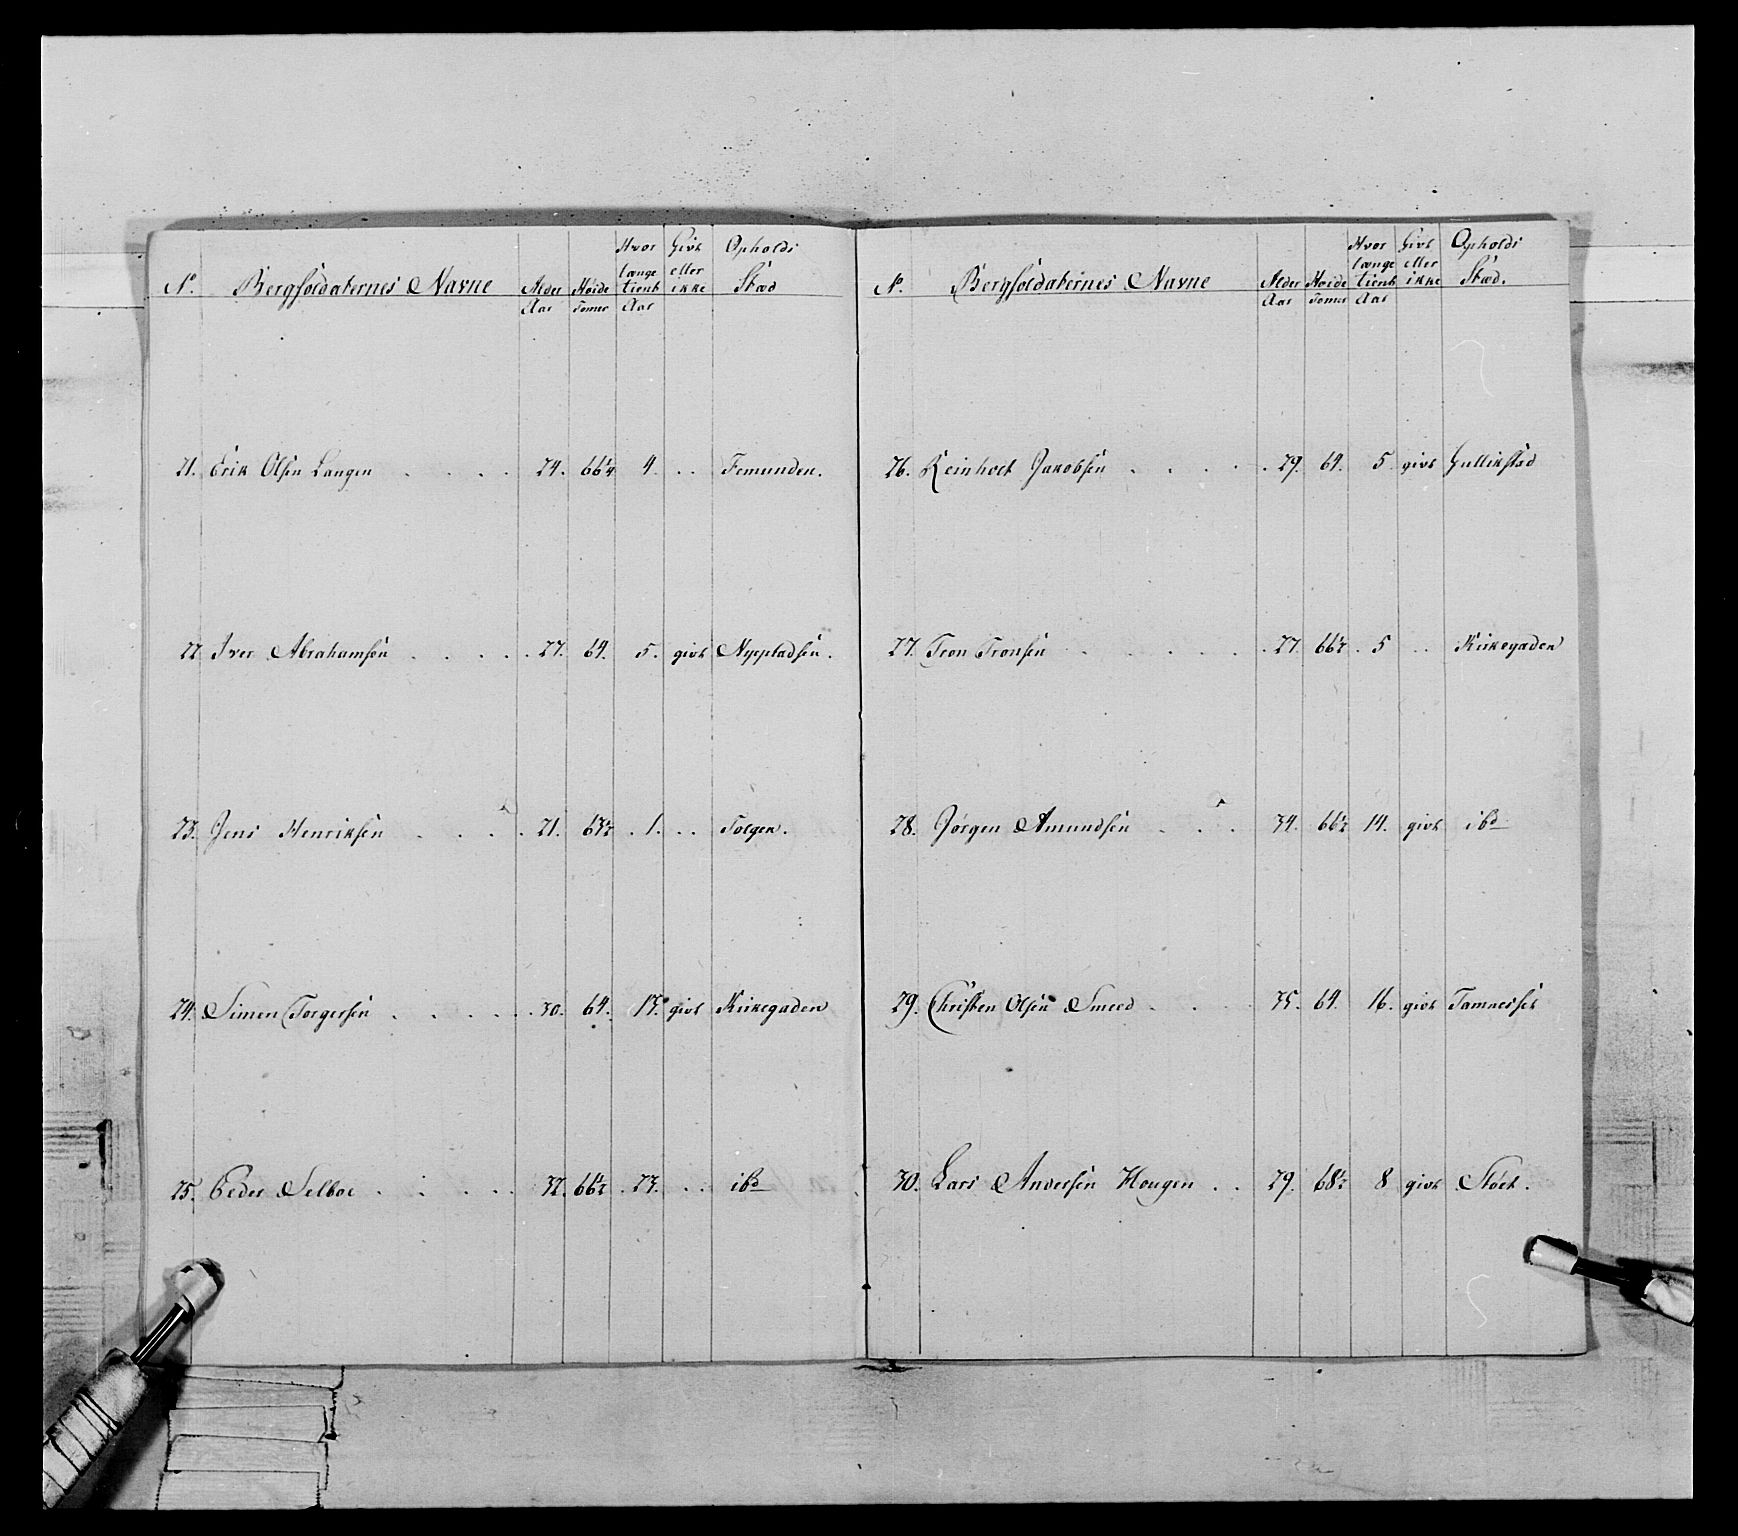 No. Bergsoldaternes Navne Alder Aar Høide Tomer Hvor længe tient Aar Givt eller ikke Opholds Stæd
21. Erik Olsen Langen . . . . 24. 66¼ 4. . . Femunden.
22 Iver Abrahamsen . . . . . 27. 64. 5. givt Nypladsen.
23. Jens Henriksen . . . . . 21. 63½ . 1. . . Tolgen.
24. Simen Torgersen . . . . . 30. 64. 13. givt Kirkegaden
25. Peder Selboe . . . . . 32. 66½ . 23. . . ibd
No. Bergsoldaternes Navne Alder Aar Høide Tomer Hvor længe tient Aar Givt eller ikke Opholds Stæd.
26. Reinholt Jakobsen . . . . . 29. 64. 5. givt Gullikstad
27. Tron Tronsen . . . . . . 27. 66½ . 5 . . Kirkegaden
28. Jørgen Amundsen . . . 34. 66½ 14. givt ibd
29. Christen Olsen Smeed . . . 35. 64. 16. givt Tamnesset
30. Lars Andersen Hougen . . 29. 68½ 8 givt Støet.